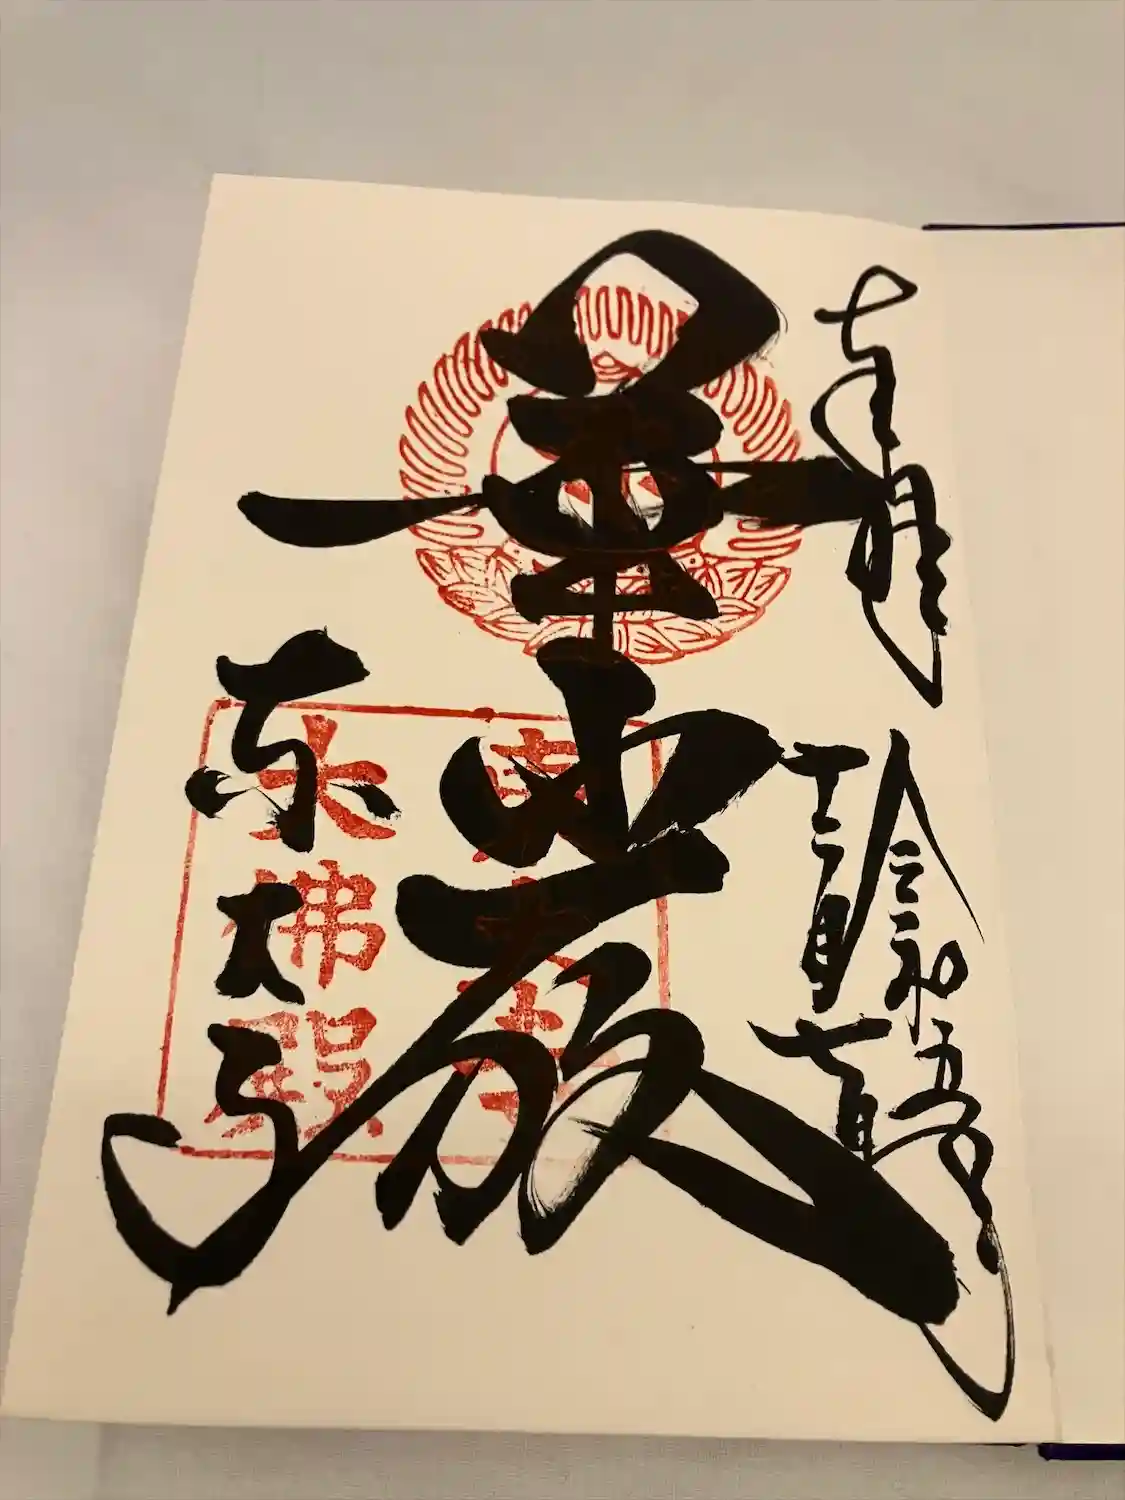 奉拝
令和五年
十二月七日
華厳
東大寺
東大寺
大佛殿